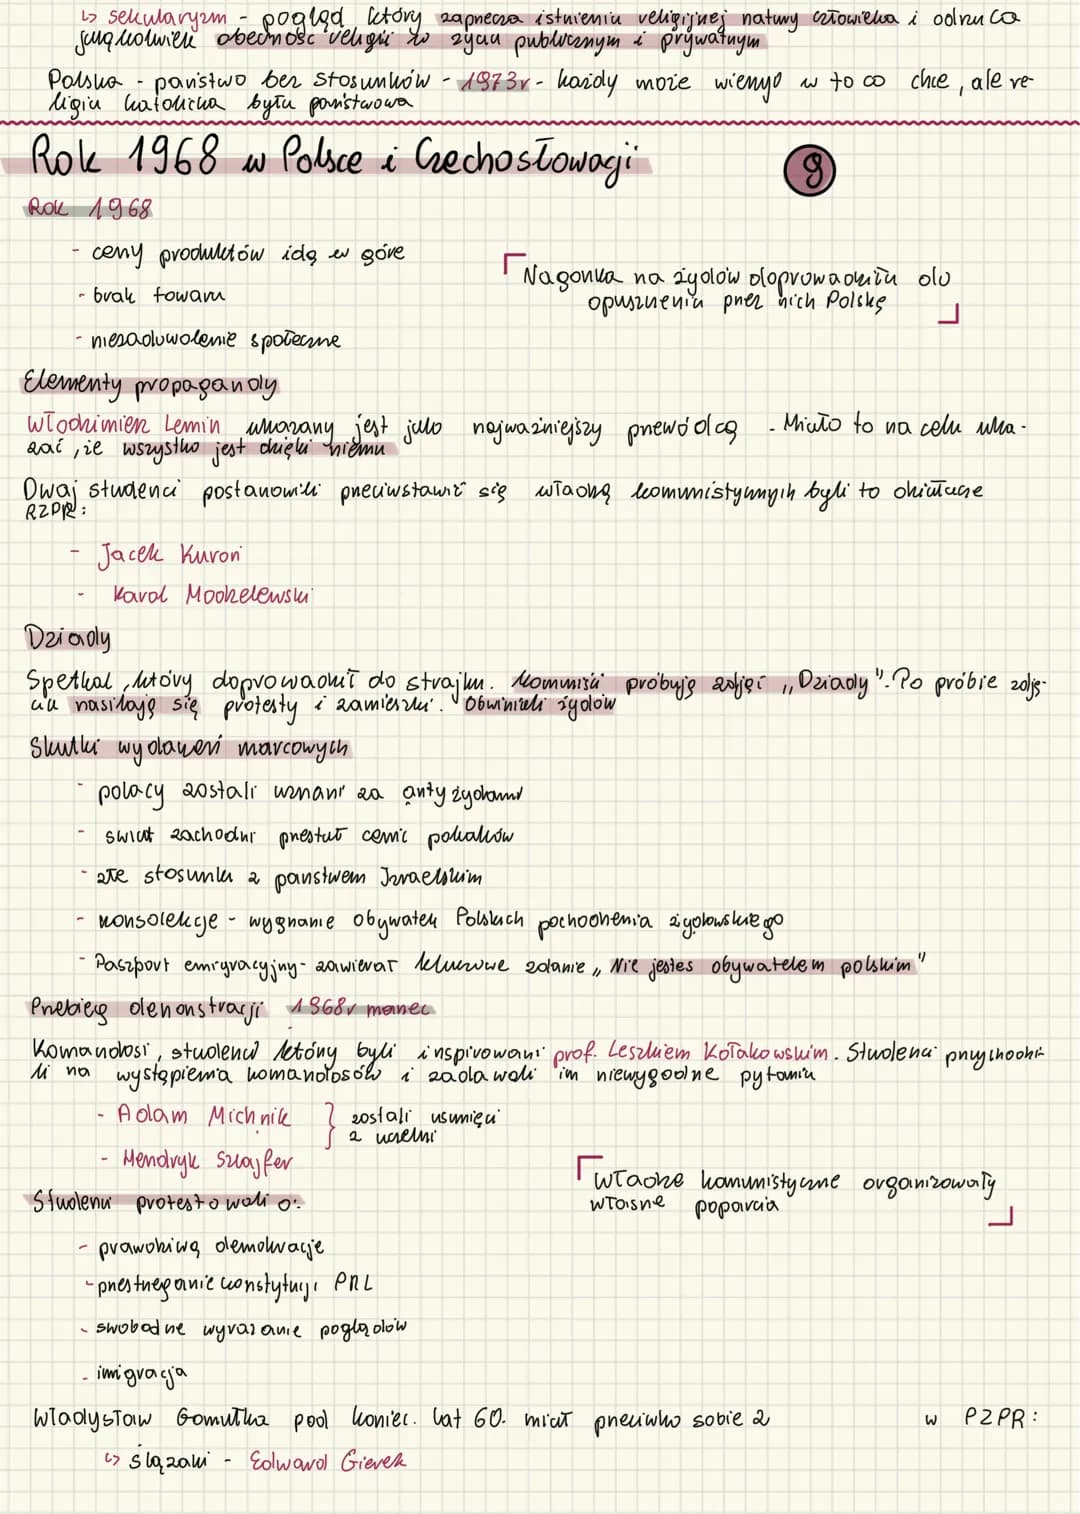 ↳ sekularyzm - pogląd, który zaprzecza istnieniu religijnej natury człowieka i odrzuca
jakąkolwiek obecność religii w życiu publicznym i prywatnym
Polska - państwo bez stosunków - 1973r - każdy może wierzyć w to co chce, ale re-
ligia katolicka była państwowa
Rok 1968 w Polsce i Czechosłowacji
9
Rok 1968
- ceny produktów idą w górę
- brak towaru
- niezadowolenie społeczne
Nagonka na żydów doprowadziła do
opuszczenia przez nich Polskę
Elementy propagandy
Włodzimierz Lenin ukazany jest jako najważniejszy przewódcą - Miało to na celu uka-
zać, że wszystko jest dzięki niemu
Dwaj studenci postanowili przeciwstawić się władzą komunistycznych byli to działacze
PZPR:
- Jacek Kuroń
- Karol Modzelewski
Dziady
Spektakl, który doprowadził do strajku. Komuniści próbują zdjąć „Dziady". Po próbie zdję-
cia nasilają się protesty i zamieszki. Obwinieli żydów
Skutki wydarzeń marcowych
- polacy zostali uznani za antyżydami
- świat zachodni przestał cenić polaków
- złe stosunki z państwem Izraelskim
- konsolekcje - wygnanie obywateli Polskich pochodzenia żydowskiego
- Paszport emigracyjny - zawierał kluczowe zdanie „Nie jesteś obywatelem polskim"
Przebieg demonstracji 1968r marzec
Komandosi, studenci którzy byli inspirowani prof. Leszkiem Kołakowskim. Studenci przychodzi-
li na wystąpienia komandosów i zadawali im niewygodne pytania
- Adam Michnik } zostali usunięci
z uczelni
- Hendryk Szlajfer
Władze komunistyczne organizowały
własne poparcia
Studenci protestowali o:
- prawdziwą demokracje
- przestrzeganie konstytucji PRL
- swobodne wyrażanie poglądów
- imigracja
Władysław Gomułka pod koniec lat 60. miał przeciwko sobie 2 w PZPR:
↳ ślązaki - Edward Gierek